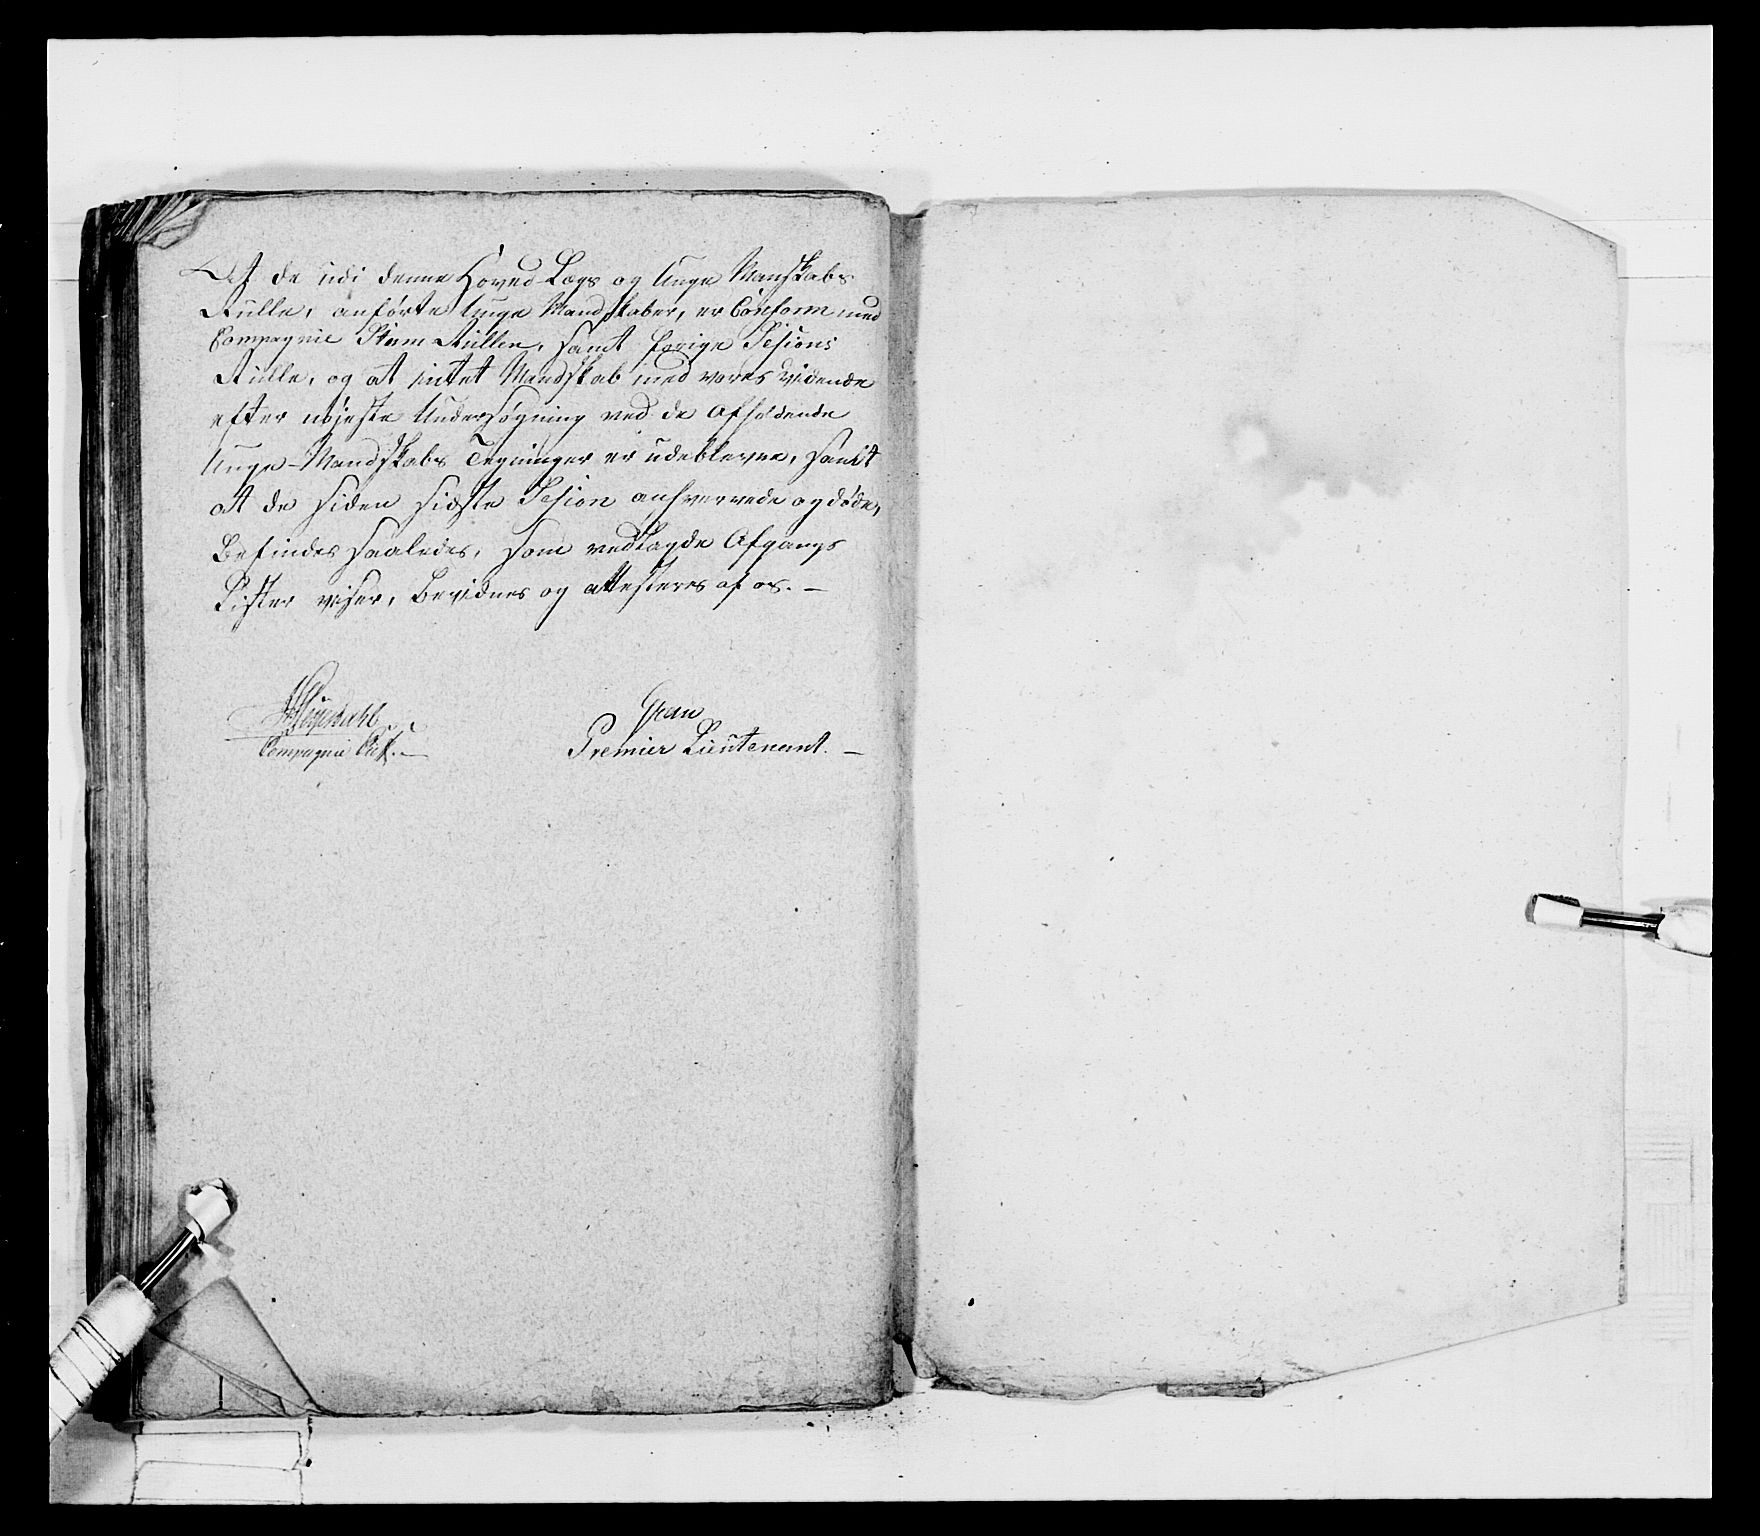 At de udi denne Hoved-Lægs og Unge Manskabs
Rulle, anførte Unge Mandskaber, er Conform med
Compagnie Stam Rullen, samt forige Sesions
Rulle, og at intet Mandskab med vores vidende
efter nøjeste Undersøgning ved de Afholdende
Unge-Mandskabs Tegninger er udeblevne, samt
at de siden sidste Sesion anhvervede og døde,
Befindes saaledes, som vedlagde Afgangs
Lister viser, Bevidnes og attesteres af os. –
Compagnie Chef. –
Gran
Premier Lieutenant. –